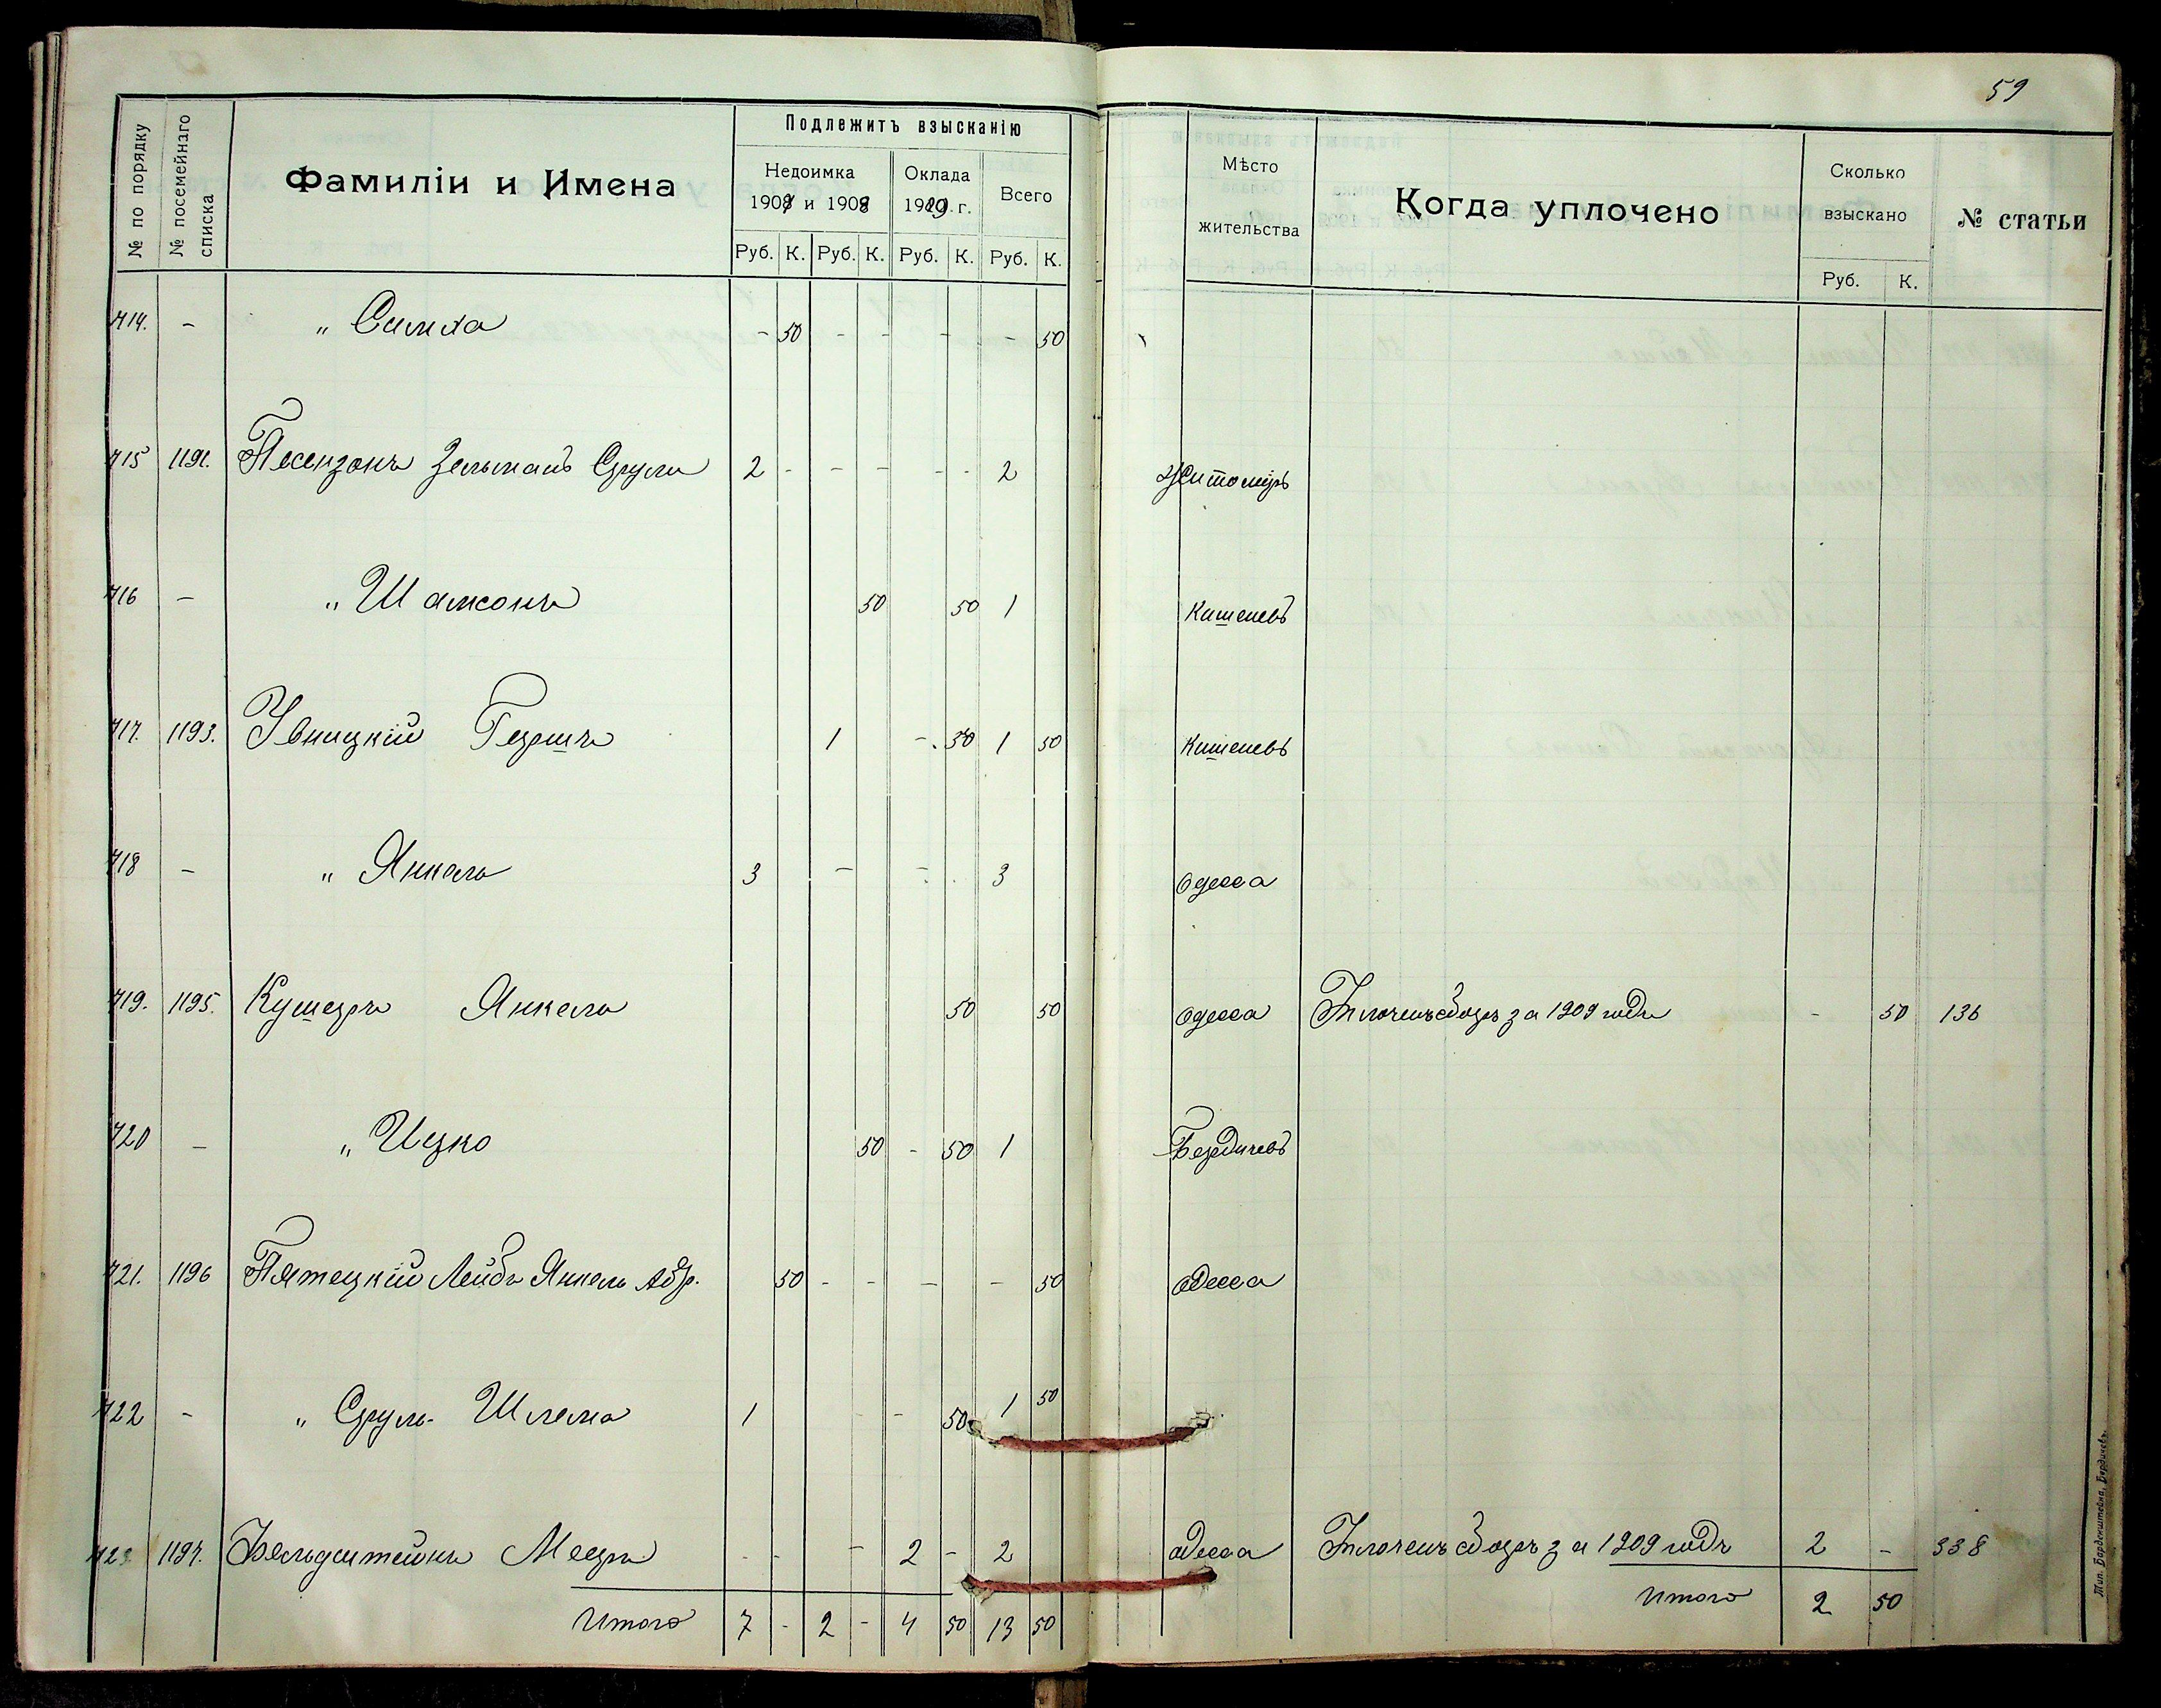 59
№ по порядку
№ посемейнаго списка
Фамиліи и Имена
Подлежитъ взысканію
Недоимка
1907 и 1908
Оклада
1909 г.
Всего
Руб. К. Руб. К. Руб. К. Руб. К.
Мѣсто
жительства
Когда уплочено
Сколько
взыскано
Руб. К.
№ статьи
714. - " Симха - 50 - - - - 50
715 1191. Песензонъ Зельманъ Сруль 2 - - - - - 2 Житоміръ
716 - " Шамсонъ 50 50 1 Кишеневъ
717. 1193. Гершъ 1 - 50 1 50 Кишеневъ
718 - " Янкель 3 - - 3 Одесса
719. 1195. Кушеръ Янкель 50 50 Одесса Уплоченъ сборъ за 1909 годъ - 50 136
720 - " Ицко 50 - 50 1 Бердичевъ
721. 1196 Пятецкій Лейбъ Янкель Абр. 50 - - - - 50 Одесса
722 - " Сруль-Шлема 1 - - 50 1 50
723. 1197. Фельдштейнъ Мееръ - - - 2 - 2 Одесса Уплоченъ сборъ за 1909 годъ 2 - 338
Итого 7 - 2 - 4 50 13 50
Итого 2 50
Тип. Борденштейна, Бердичевъ.